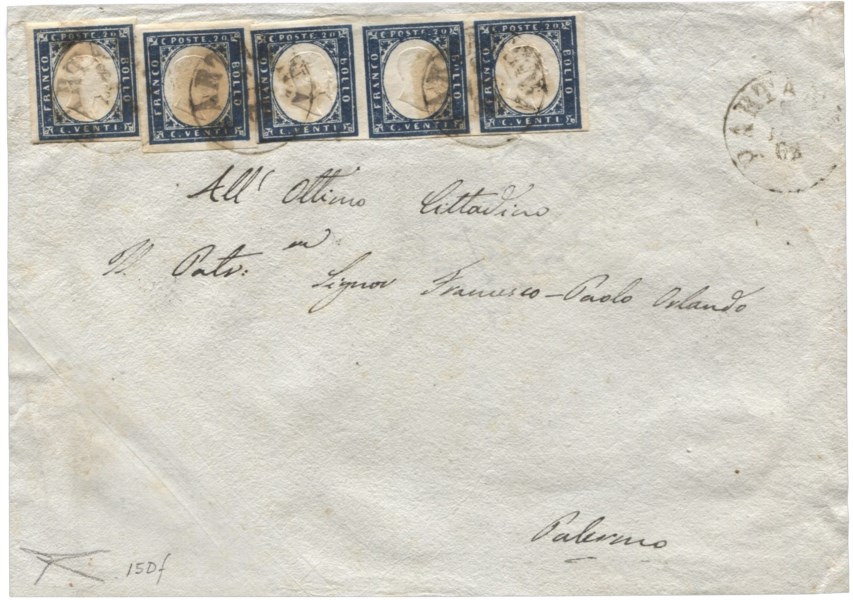 C. POSTE 20 FRANCO BOLLO C. VENTI
C. POSTE 20 FRANCO BOLLO C. VENTI
C. POSTE 20 FRANCO BOLLO C. VENTI
C. POSTE 20 FRANCO BOLLO C. VENTI
C. POSTE 20 FRANCO BOLLO C. VENTI
PARTA
62
All' Ottimo Cittadino
Patr: Signor Francesco-Paolo Orlando
Palermo
150f